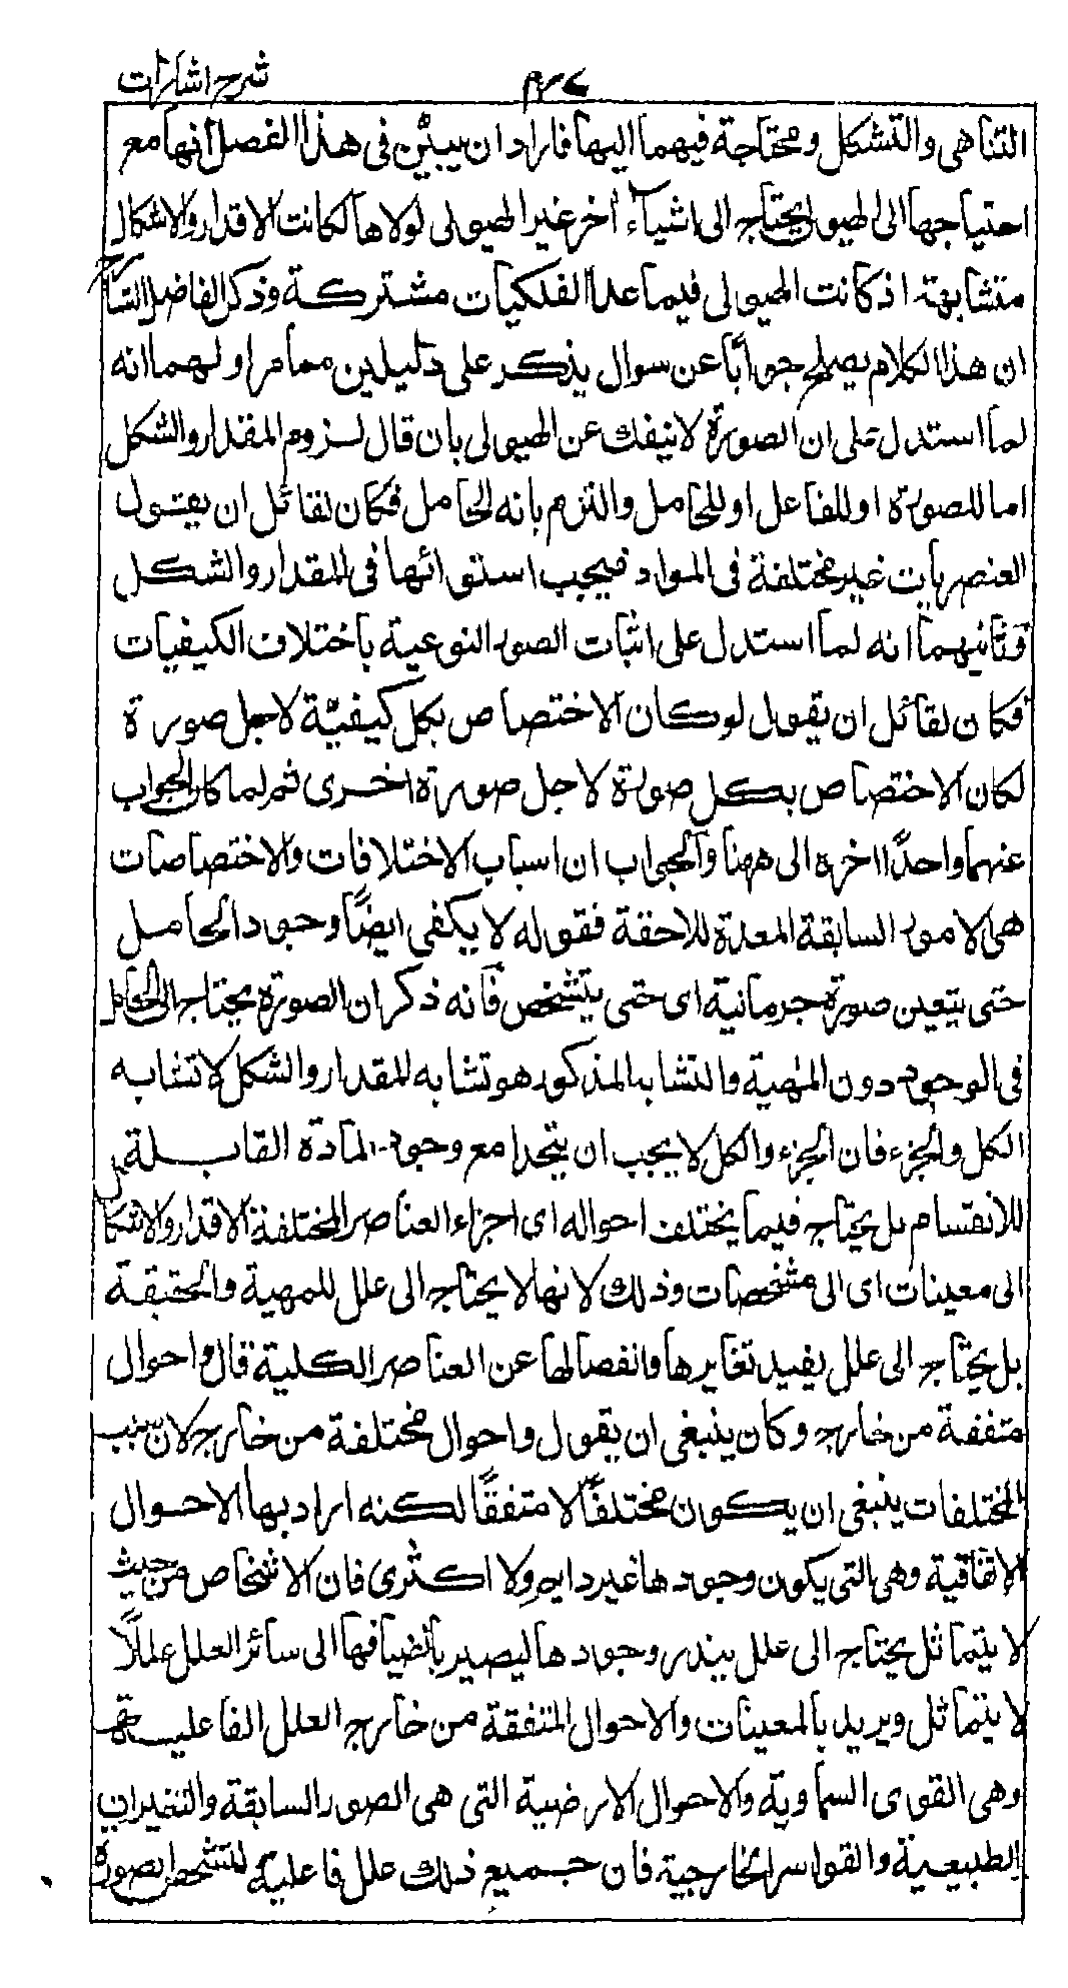 شرح اشارات
التناهى والتشكل ومحتاجة فيهما اليها فاراد ان يبيّن فى هذا الفصل انها مع
احتياجها الى الهيولى يحتاج الى اشياء أخر غير الهيولى لولاها لكانت الاقدار والاشكال
متشابهة اذ كانت الهيولى فيما عدا الفلكيات مشتركة وذكر الفاضل الشارح
ان هذا الكلام يصلح جواباً عن سوال يذكر على دليلين مما مر اولهما انه
لما استدل على ان الصورة لا ينفك عن الهيولى بان قال لزوم المقدار والشكل
اما للصورة او للفاعل او للحامل والتزم بانه للحامل فكان لقائل ان يقول
العنصريات غير مختلفة فى المواد فيجب استوائها فى المقدار والشكل
وثانيهما انه لما استدل على اثبات الصور النوعية باختلاف الكيفيات
فكان لقائل ان يقول لو كان الاختصاص بكل كيفيّة لاجل صورة
لكان الاختصاص بكل صورة لاجل صورة اخرى ثم لما كان الجواب
عنهما واحدًا اخره الى ههنا والجواب ان اسباب الاختلافات والاختصاصات
هى الامور السابقة المعدة للاحقة فقوله لا يكفى ايضًا وجود الحامل
حتى يتعين صورة جرمانية اى حتى يتشخص فانه ذكر ان الصورة يحتاج الى الحامل
فى الوجود دون المهية والتشابه المذكور هو تشابه المقدار والشكل لا تشابه
الكل والجزء فان الجزء والكل لا يجب ان يتحدا مع وجود المادة القابلة
للانقسام بل يحتاج فيما يختلف احواله اى اجزاء العناصر المختلفة الاقدار والاشكال
الى معينات اى الى مشخصات وذلك لانها لا يحتاج الى علل للمهية والحقيقة
بل يحتاج الى علل يفيد تغايرها وانفصالها عن العناصر الكلية قال واحوال
متفقة من خارج وكان ينبغى ان يقول واحوال مختلفة من خارج لان سبب
المختلفات ينبغى ان يكون مختلفًا لا متفقًا لكنه اراد بها الاحوال
الاتفاقية وهى التى يكون وجودها غير دايم ولا اكثرى فان الاشخاص من حيث
لا يتماثل يحتاج الى علل يندر وجودها ليصير بانضيافها الى سائر العلل عللاً
لا يتماثل ويريد بالمعينات والاحوال المتفقة من خارج العلل الفاعلية
وهى القوى السماوية والاحوال الارضية التى هى الصور السابقة والتغيرات
الطبيعية والقواسر الخارجية فان جميع ذلك علل فاعلية لتشخص الصورة